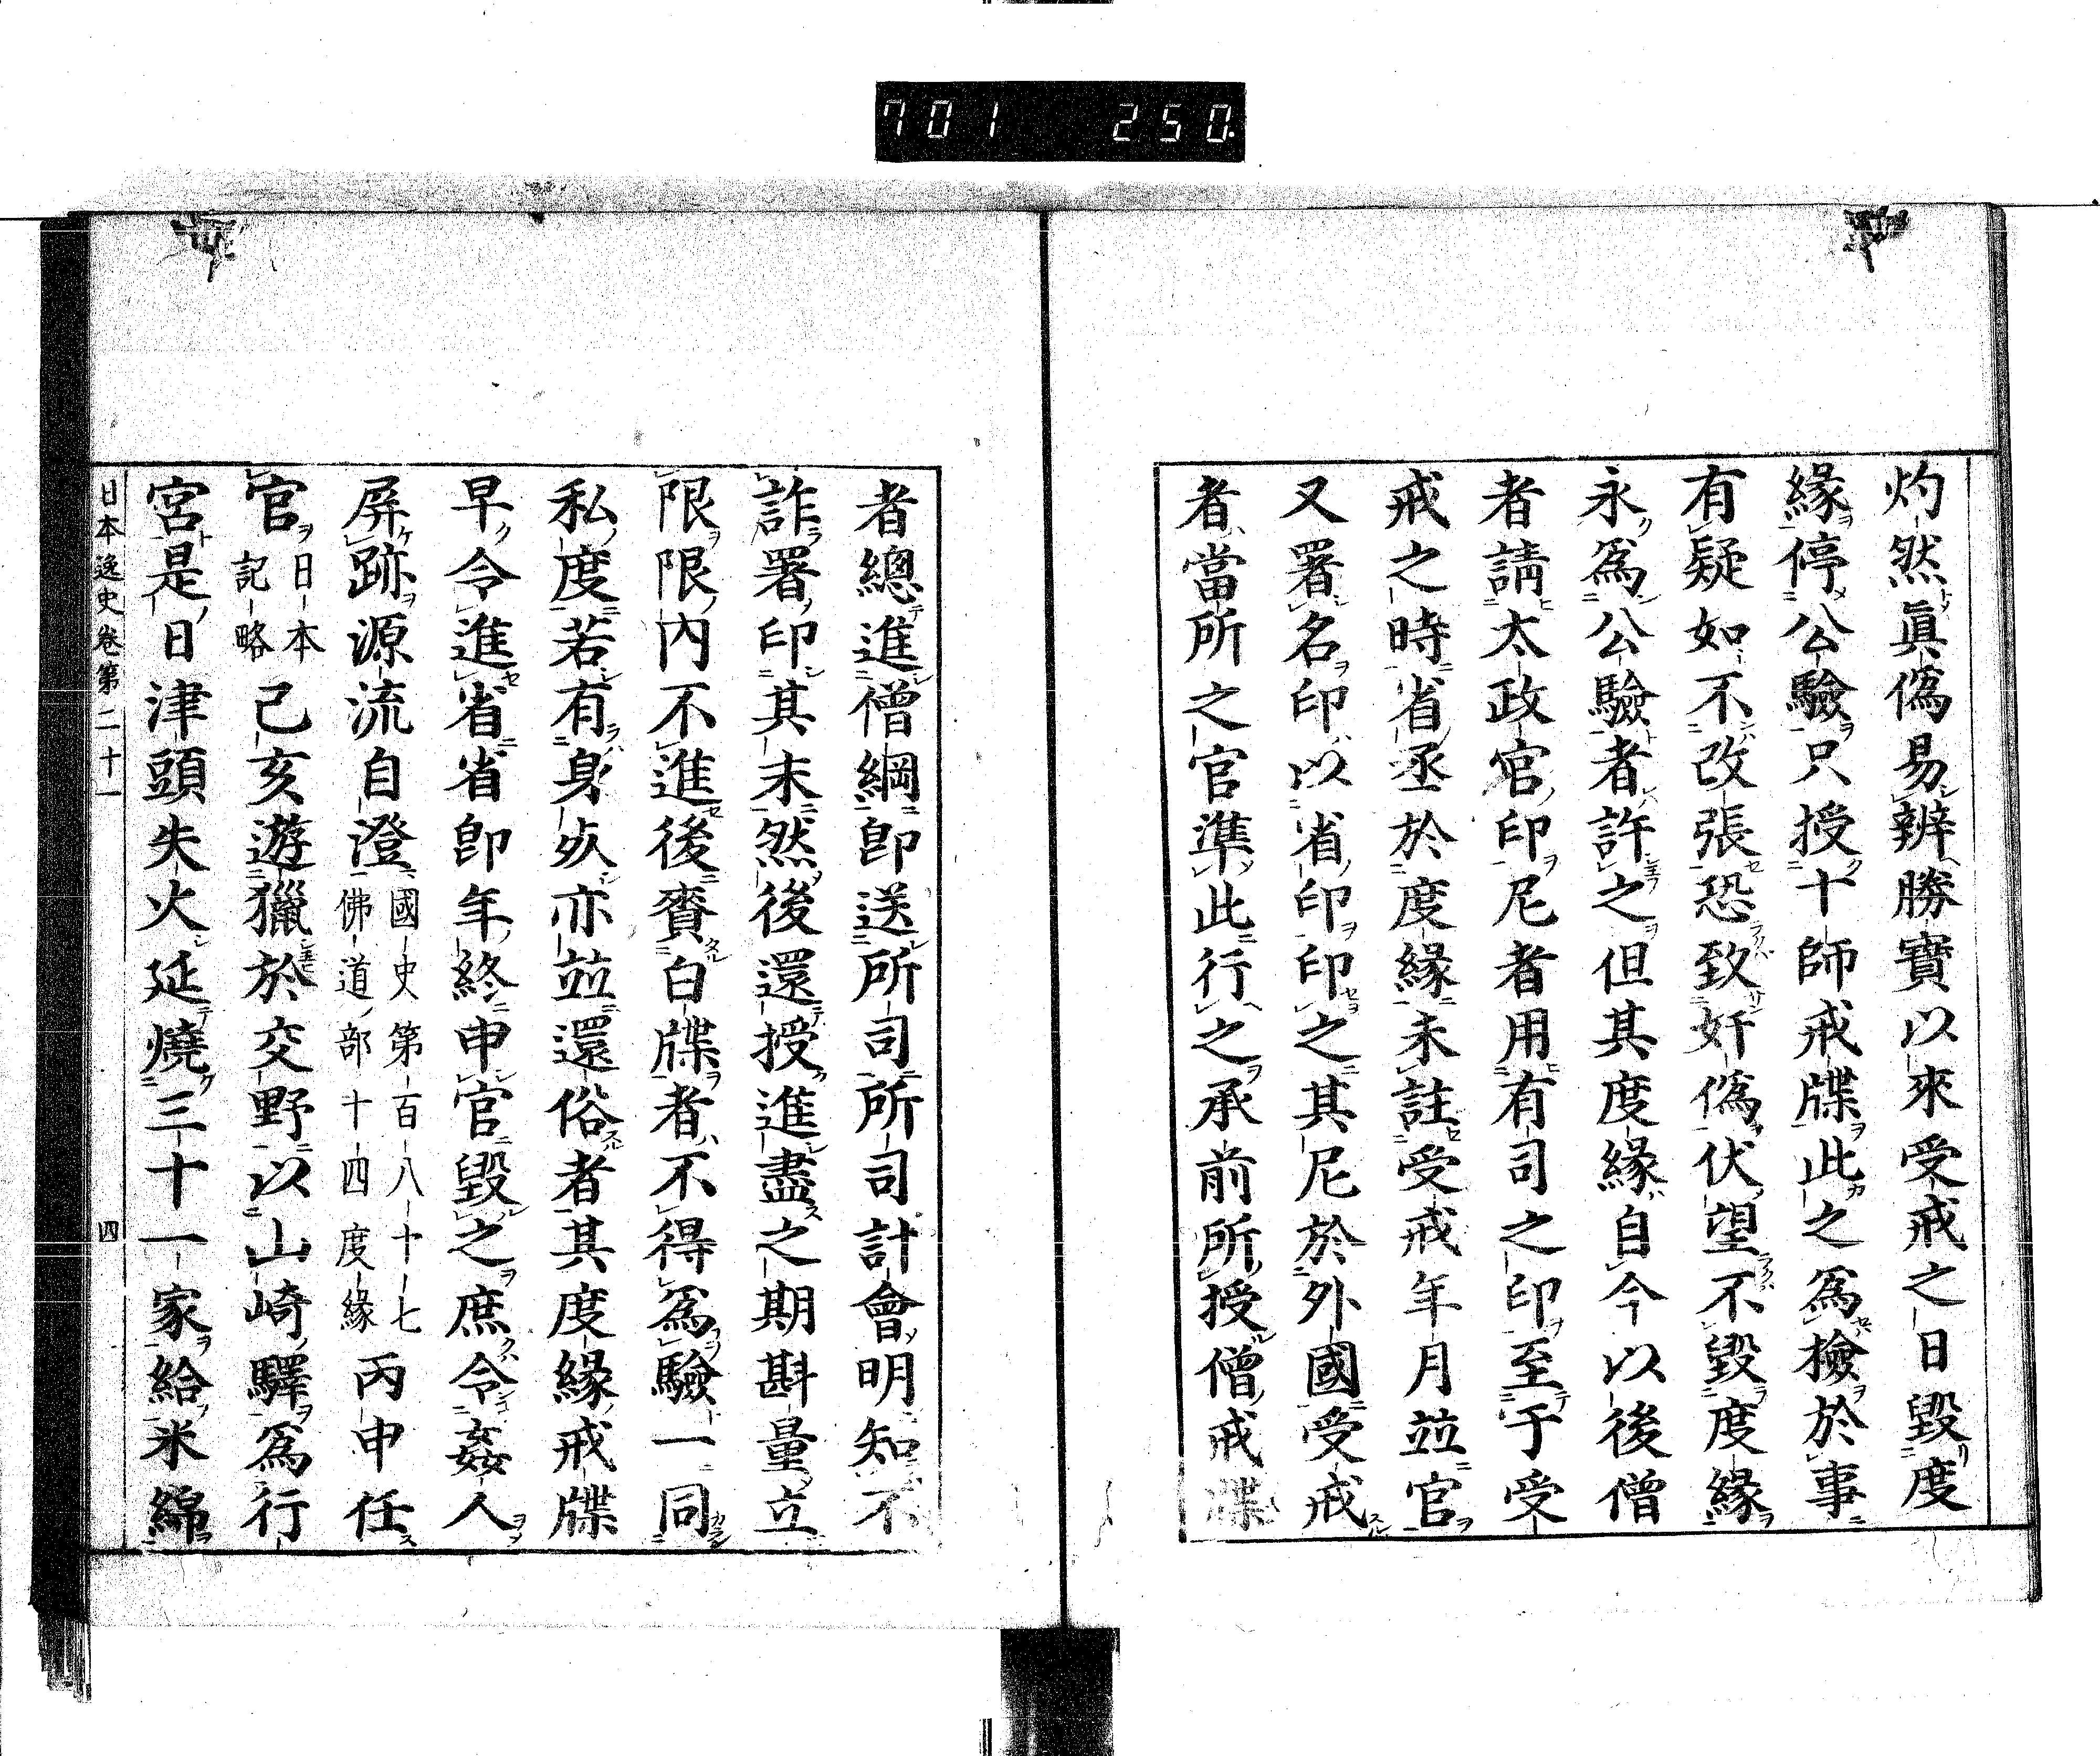 701 250.
灼然眞僞易辨勝寶以來受戒之日毀度
緣停公驗只授十師戒牒此之爲檢於事
有疑如不改張恐致奸僞伏望不毀度緣
永爲公驗者許之但其度緣自今以後僧
者請太政官印尼者用有司之印至于受
戒之時省丞於度緣末註受戒年月並官
又署名印以省印印之其尼於外國受戒
者當所之官準此行之承前所授僧戒牒
者總進僧綱卽送所司所司計會明知不
詐署印其末然後還授進盡之期斟量立
限限內不進後賷白牒者不得爲驗一同
私度若有身死亦並還俗者其度緣戒牒
早令進省省卽年終申官毀之庶令姦人
屏跡源流自澄國史第百八十七
佛道部十四度緣丙申任
官日本
記略己亥遊獵於交野以山崎驛爲行
宮是日津頭失火延燒三十一家給米綿
日本逸史卷第二十一 四